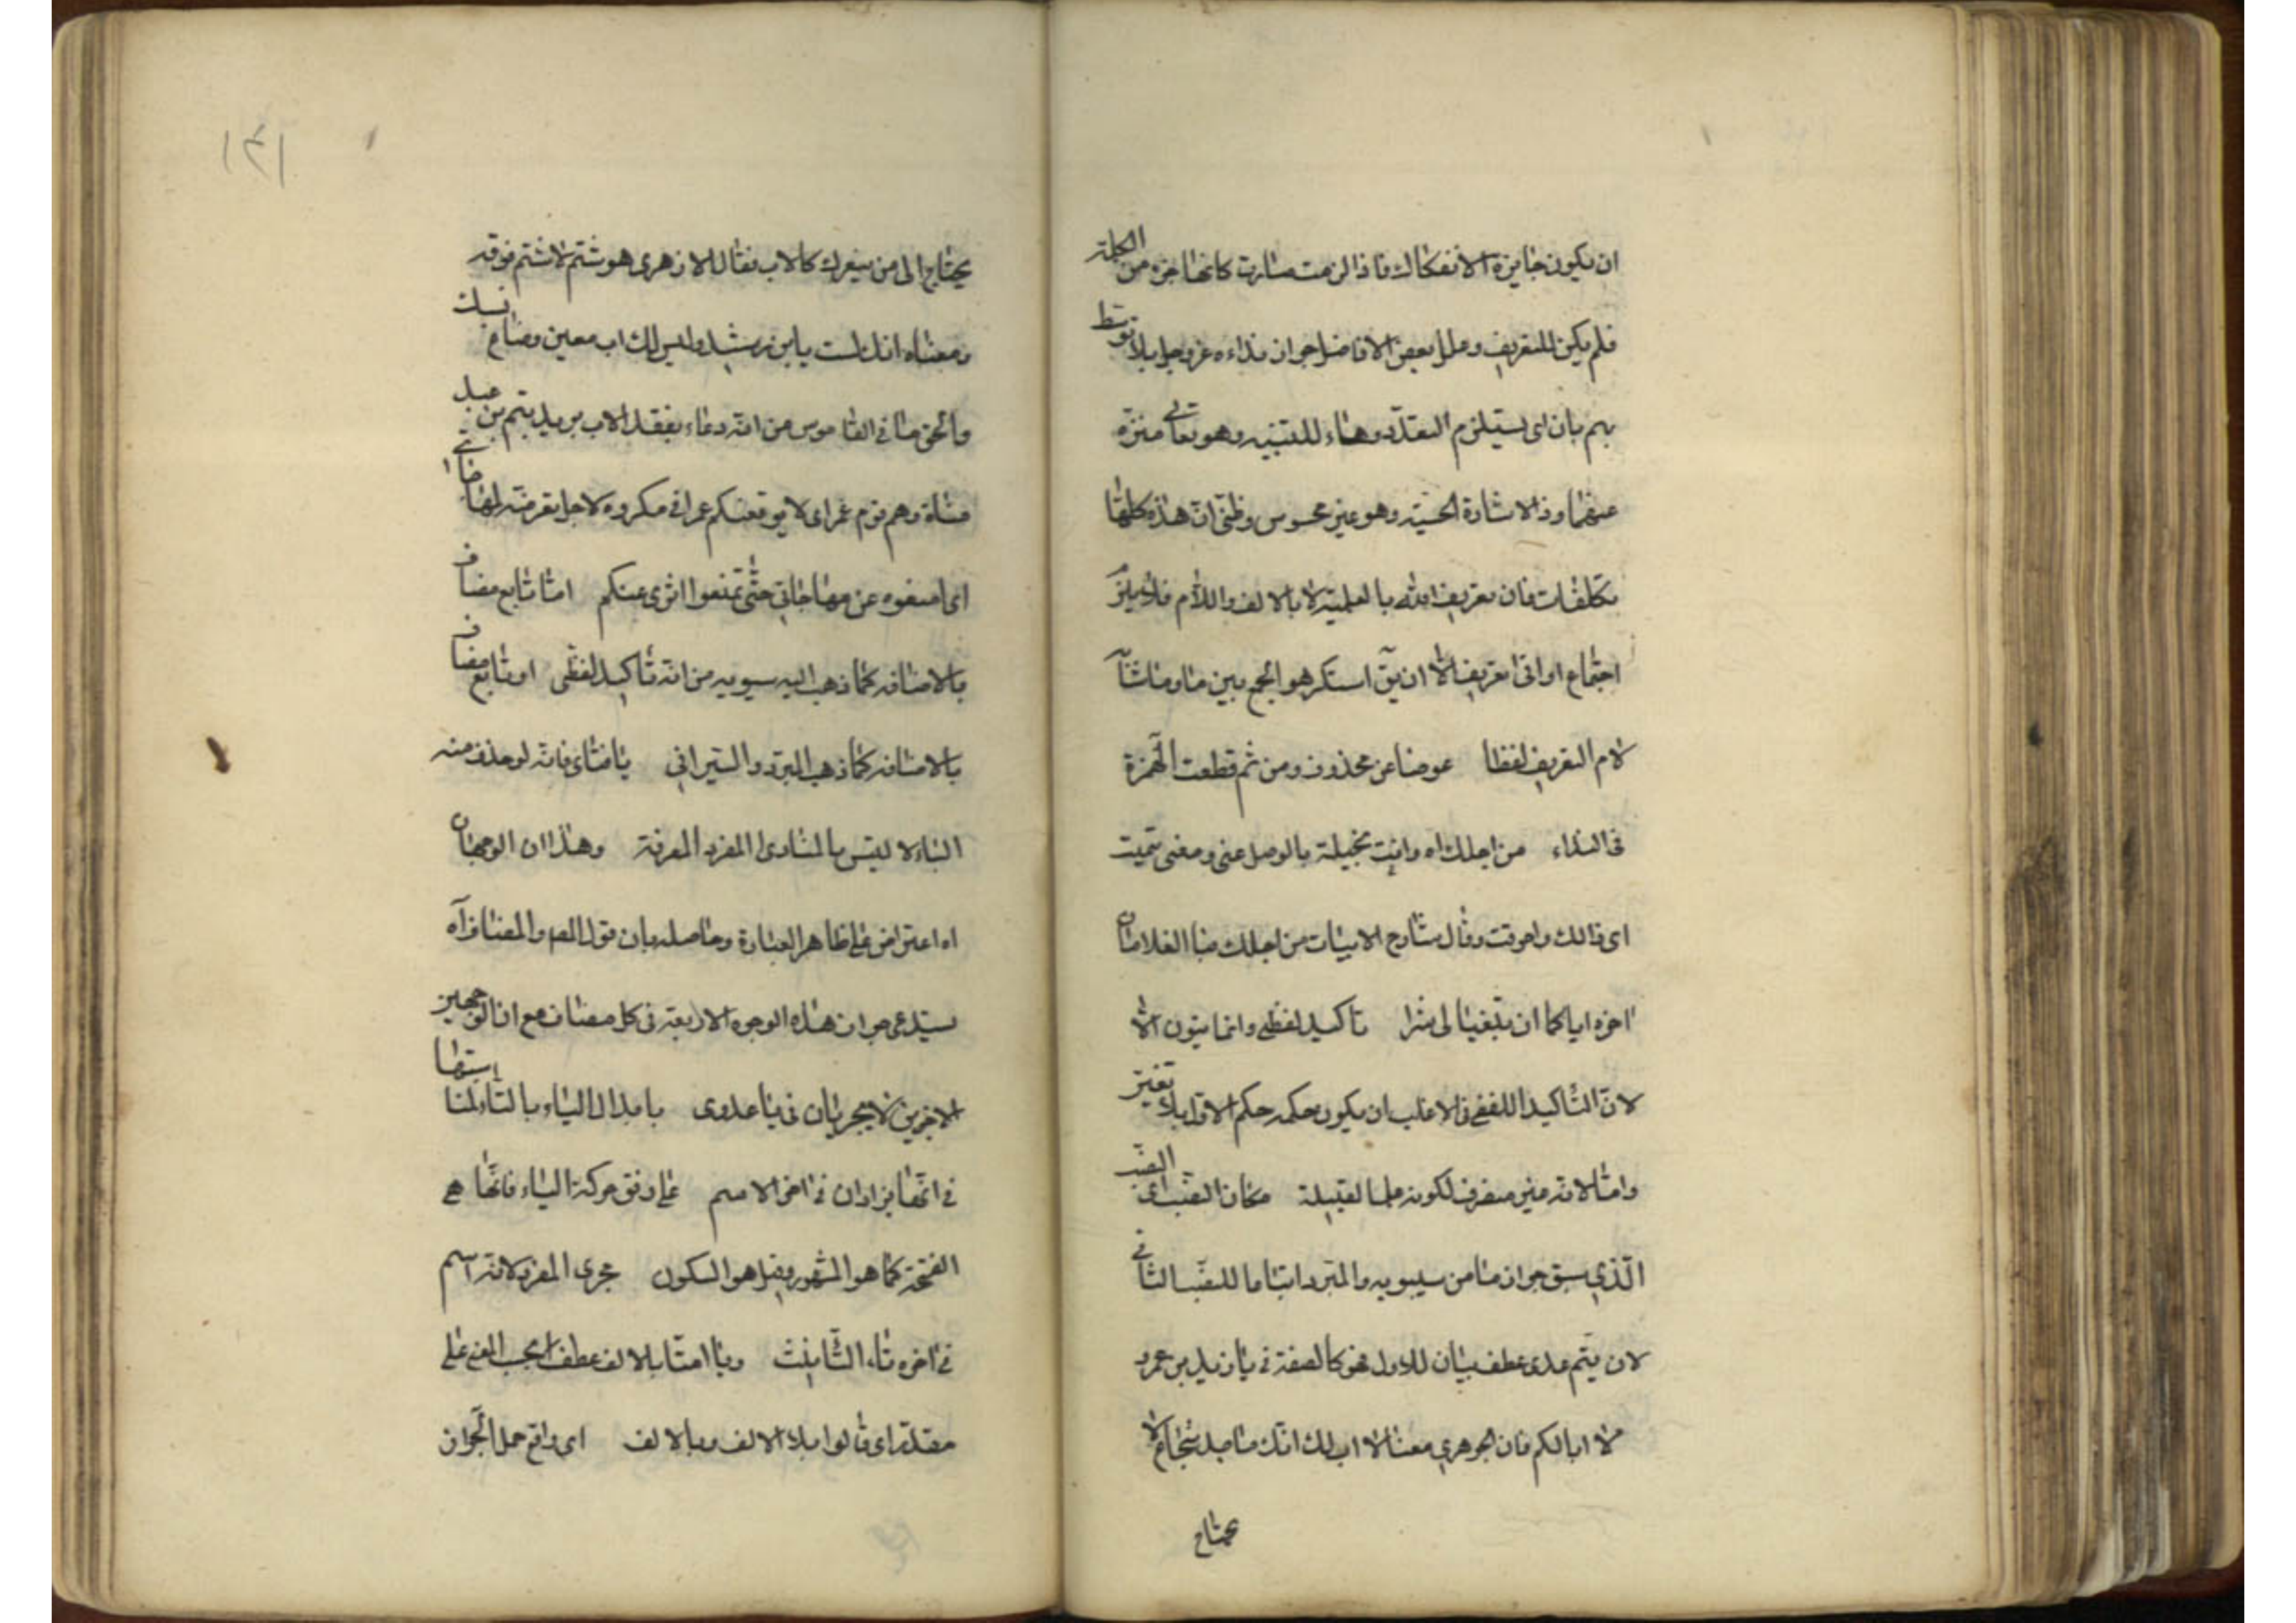 ان يكون جايزة الانفكاك فاذا لزمت صارت كانها جزء من الكلمة
فلم يكن للتعريف وعلل بعض الافاضل جواز نداءه عز وجل بلا توسط
بهم بان اى يستلزم التعدّد وهاء للتنبيه وهو تعالى منزّه
عنهما وذا لاشارة الحسيّة وهو غير محسوس وظنّى انّ هذه كلها
تكلفات فان تعريف الله بالعلمية لا بالالف واللام فلا يلزم
اجتماع اداتى تعريف الّا ان يقٓ استكرهوا الجمع بين ما وما شٓا
لام التعريف لفظا عوضا عن محذوف ومن ثم قطعت الهمزة
فى النداء من اجلك اه وانت بخيلة بالوصل عنى ومعنى تيّمت
اى ذالك وقال شارح الابيات من اجلك فيا الغلامان
اخره اياكما ان تبغيا لى شرا تاكيد لفظى وانما الّا
لانّ التّاكيد اللفظى فى الاغلب ان يكون حكمه حكم الاوّل بلا تغيير
وامّا لانه غير منصرف لكونه علما لقبيلة مكان النصب اى النصب
الّذى سبق جوازه منا من سيبويه والمبرد اتباعا للنصب الثانى
لان تيم عدى عطف بيان للاول فهو كالصفة فى يا زيد بن عمرو
لا ابا لكم قال الجوهرى معناه لا اب لك انّك شجاع لا
يحتاج
١٤١
يحتاج الى من يعزك كالاب فقال الازهرى هو شتم لا شتم فوقه
ومعناه انك لست بابن رشيد وليس لك اب معين وضاع نسبك
والحق ما فى القاموس من انّه دعاء بفقد الاب يريد بتيم بن عبد
مناة وهم قوم عمر اى لا يوقعنكم عمر فى مكروه لاجل تعرضه لهجائى
اى امنعوه عن مهاجاتى حتّى تمنعوا شرى عنكم امّا تابع مضاف
بالاضافه كما ذهب اليه سيبويه من انّه تاكيد لفظى او تابع مضاف
بالاضافه كما ذهب المبرّد والسّيرافى يا فتاى فانّه لو حذف منه
الياء لا لتبس بالمنادى المفرد المعرفة وهذان الوجهان
اه اعتراض على ظاهر العبارة وحاصله بان قول المص والمضاف اه
يستدعى جواز هذه الوجوه الاربعة فى كل مضاف مع ان الوجهين
الاخيرين لا يجريان فى يا عدوى بابدال الياء بالتاء لمناسبتها
فى انّها يزادان فى اخر الاسم على وفق حركة الياء فانّها هى
الفتحة كما هو المشهور وقيل هو السكون مجرى المفرد لانه اسم
فى اخره تاء التّانيث ويا امتا بالالف عطف بحسب المعنى على
مقدّر اى قالوا بلا الالف وبالالف اى واقع حمل الجواز